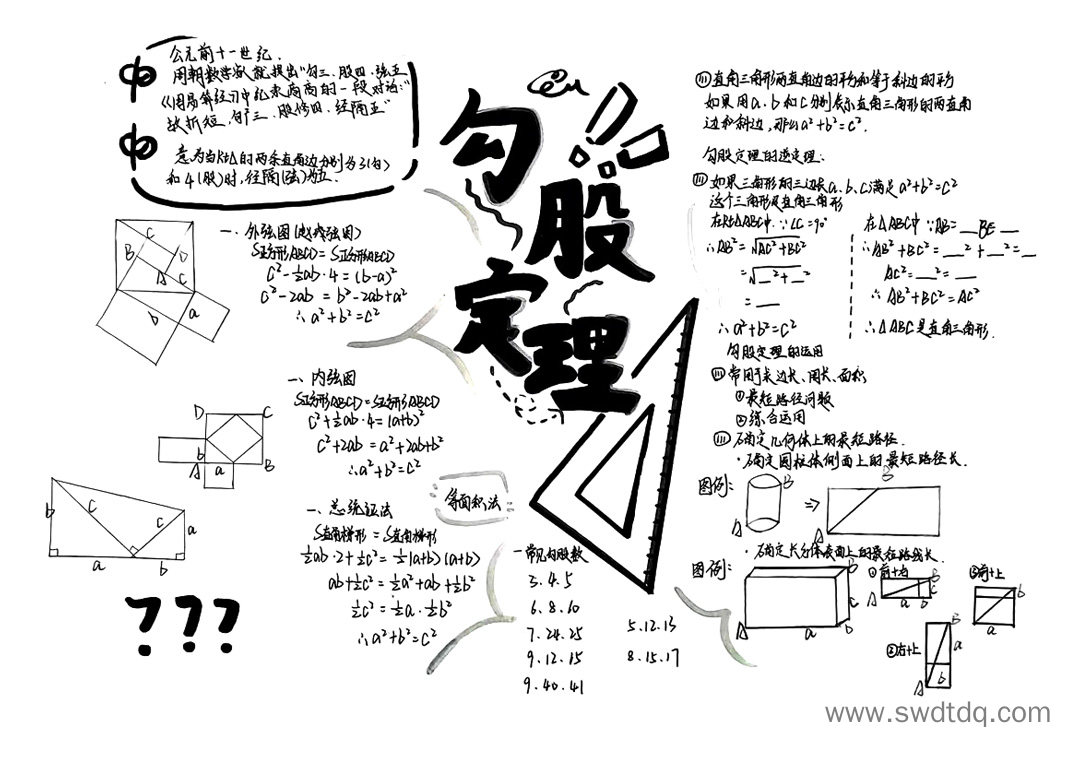 公元前十一世纪.
周朝数学家就提出“勾三、股四、弦五
《周髀算经》中记录商高的一段对话:“
故折短,勾广三、股修四、经隅五”
意为当Rt△的两条直角边分别为3(勾)
和4(股)时,径隅(弦)为五.
勾
股
定
理
一、外弦图(赵爽弦图)
S正方形ABCD=S正方形ABCD
c²-½ab·4=(b-a)²
c²-2ab=b²-2ab+a²
∴a²+b²=c²
c
B
D
A
c
b
a
一、内弦图
S正方形ABCD=S正方形ABCD
c²+½ab·4=(a+b)²
c²+2ab=a²+2ab+b²
∴a²+b²=c²
D
C
b
A
a
B
一、总统证法
S直角梯形=S直角梯形
½ab·2+½c²=½(a+b)(a+b)
ab+½c²=½a²+ab+½b²
½c²=½a·½b²
∴a²+b²=c²
b
c
c
a
a
b
???
等面积法
一常见勾股数
3.4.5
6.8.10
7.24.25
9.12.15
9.40.41
5.12.13
8.15.17
直角三角形两直角边的平方和等于斜边的平方
如果用a.b和c分别表示直角三角形的两直角
边和斜边,那么a²+b²=c².
勾股定理的逆定理:
如果三角形的三边长a、b、c满足a²+b²=c²
这个三角形是直角三角形
在Rt△ABC中.∵∠C=90°
∴AB²=√AC²+BC²
=√__²+__²
=__
∴a²+b²=c²
在△ABC中∵AB=__BC__
∴AB²+BC²=__²+__²=__
AC²=__²=__
∴AB²+BC²=AC²
∴△ABC是直角三角形.
勾股定理的运用
常用于求边长、周长、面积
①最短路径问题
②综合运用
确定几何体上的最短路径.
·确定圆柱体侧面上的最短路径长.
图例:
B
A
⇒
B
A
·确定长方体表面上的最短路线长.
图例:
B
c
A
a
b
①前+右
B
c
A
a
b
③前+上
b
a
②右+上
B
a
b
A
www.swdtdq.com